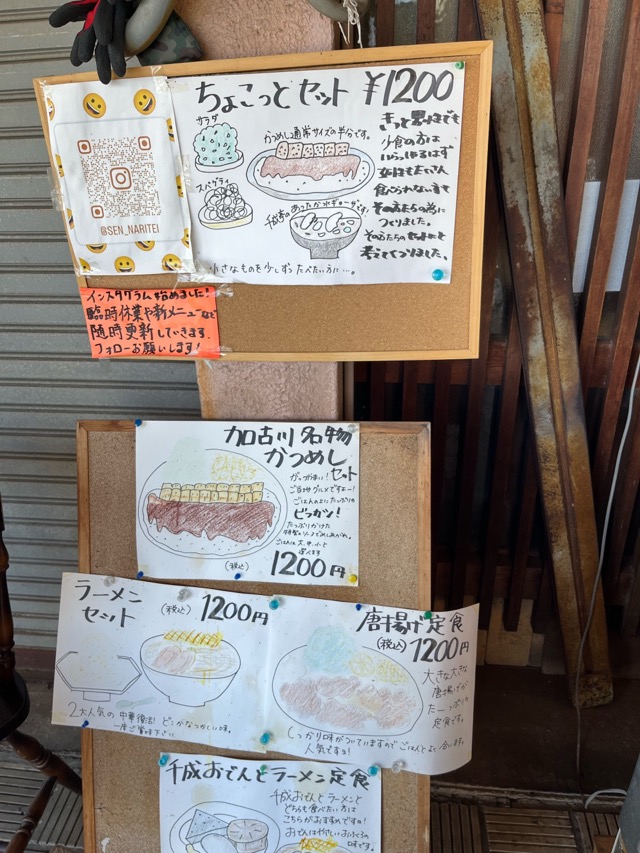 ちょこっとセット ¥1200
サラダ
かつめし通常サイズの半分です。
スパゲティ
千成亭のあったか水ギョーザです!
小さなものを少しずつたべたい方に…。
きっと思ほせでも
少食の方は
いらっしゃるはず
女性もたくさん
食べられないます
その方たちの為に
つくりました。
その方たちの
考えてつくりました。
@SEN_NARITEI
インスタグラム始めました!
臨時休業や新メニューなど
随時更新していきます
フォローお願いします!
加古川名物
かつめし
セット
がっつりうまい!
ご当地グルメですよー!
ごはんの上にたっぷりの
ビフカツ!
たっぷりかけた
特製のソースでめしあがれ。
ごはんは大、中、小と
選べます
(税込) 1200円
ラーメン
セット
(税込) 1200円
2大人気の中華復活! どこかなつかしい味。
一度ご賞味下さい
唐揚げ定食
(税込) 1200円
大きな大きな
唐揚げが
たーっぷりの
定食です。
しっかり味がついていますのでごはんとよく合います。
人気ですョ!
千成おでんとラーメン定食
千成おでんとラーメン
どちらも食べたい方は
こちらがおすすめですの!
おでんはやさしいおふくろの
味です。